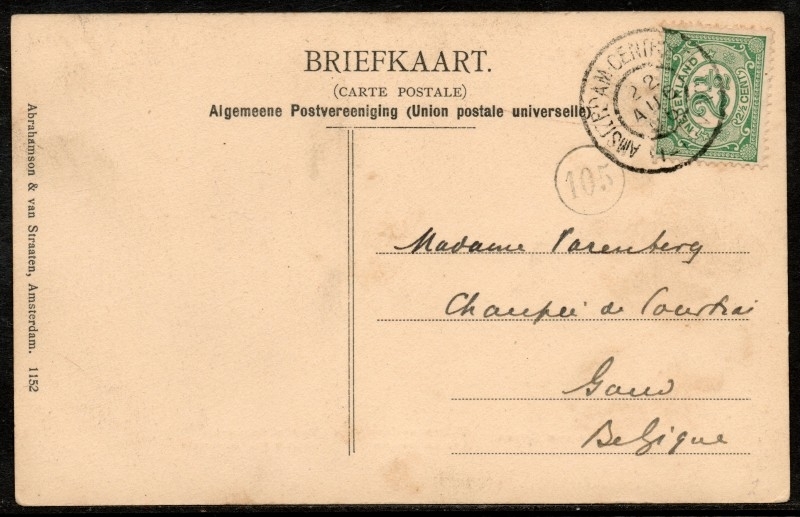 BRIEFKAART.
(CARTE POSTALE)
Algemeene Postvereeniging (Union postale universelle)
AMSTERDAM CENTR
22
AUG
NEDERLAND
2½
CENT
105
Madame Varenberg
Chaussée de Courtrai
Gand
Belgique
Abrahamson & van Straaten, Amsterdam. 1152